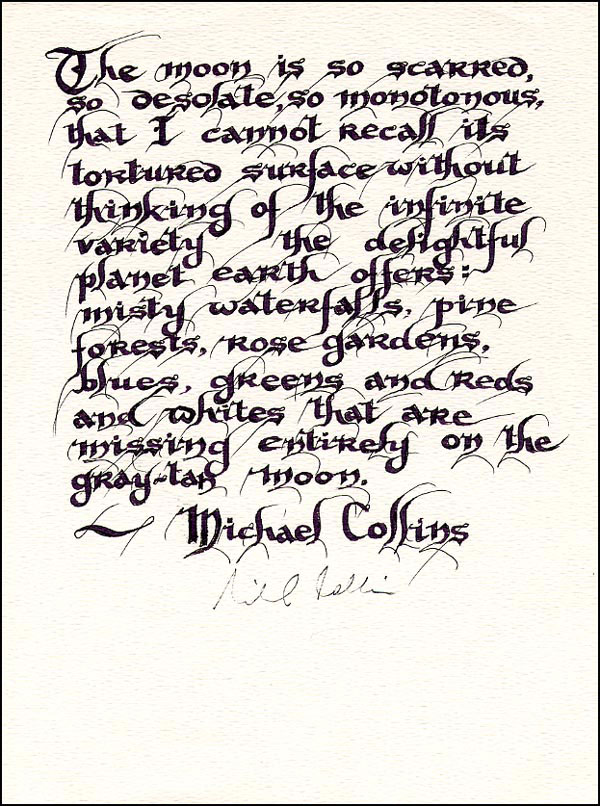 The moon is so scarred,
so desolate, so monotonous,
that I cannot recall its
tortured surface without
thinking of the infinite
variety the delightful
planet earth offers:
misty waterfalls, pine
forests, rose gardens,
blues, greens and reds
and whites that are
missing entirely on the
gray-tan moon.
~ Michael Collins
Michael Collins